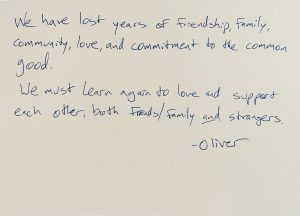 We have lost years of friendship, family,
community, love, and commitment to the common
good.
We must learn again to love and support
each other, both Freds/family and strangers.
-Oliver